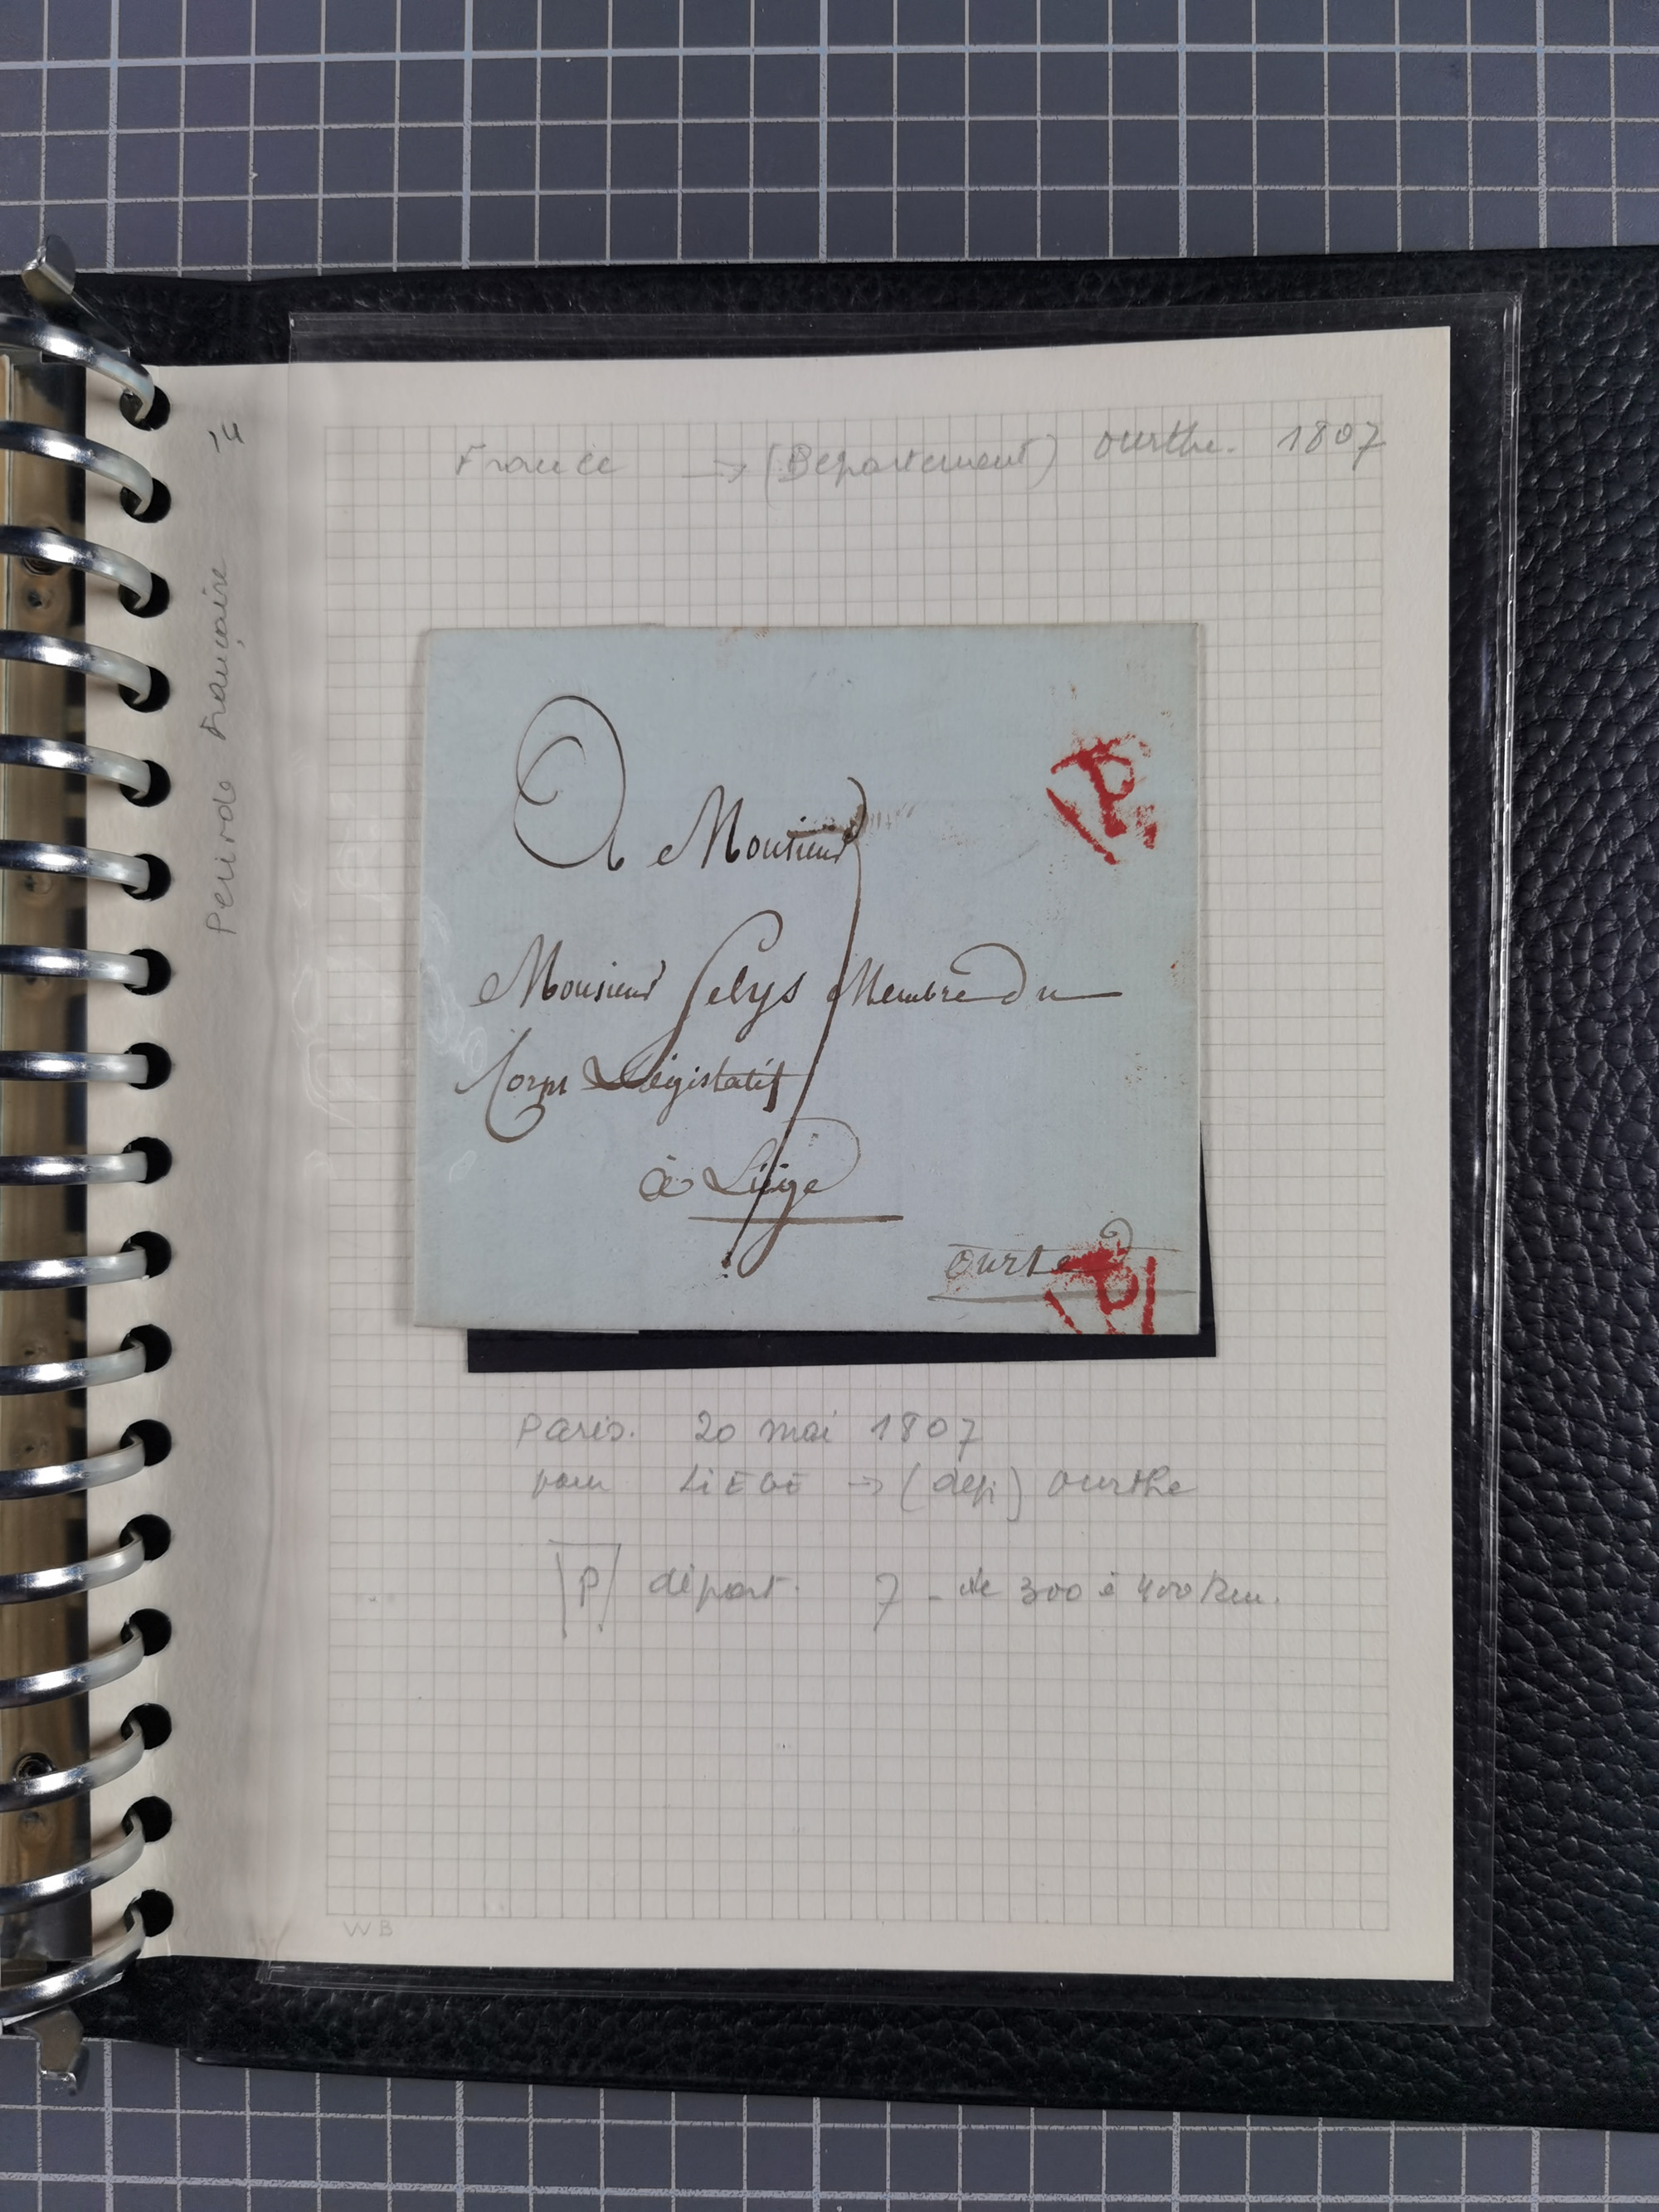 14
France → (Departement) Ourthe. 1807
Periode Française
A Monsieur
P
Monsieur Selys Membre Du
Corps Législatif
à Liège
7
Ourte
P
Paris. 20 mai 1807
pour LIEGE → (dep) Ourthe
P départ. 7 - de 300 à 400 km.
WB